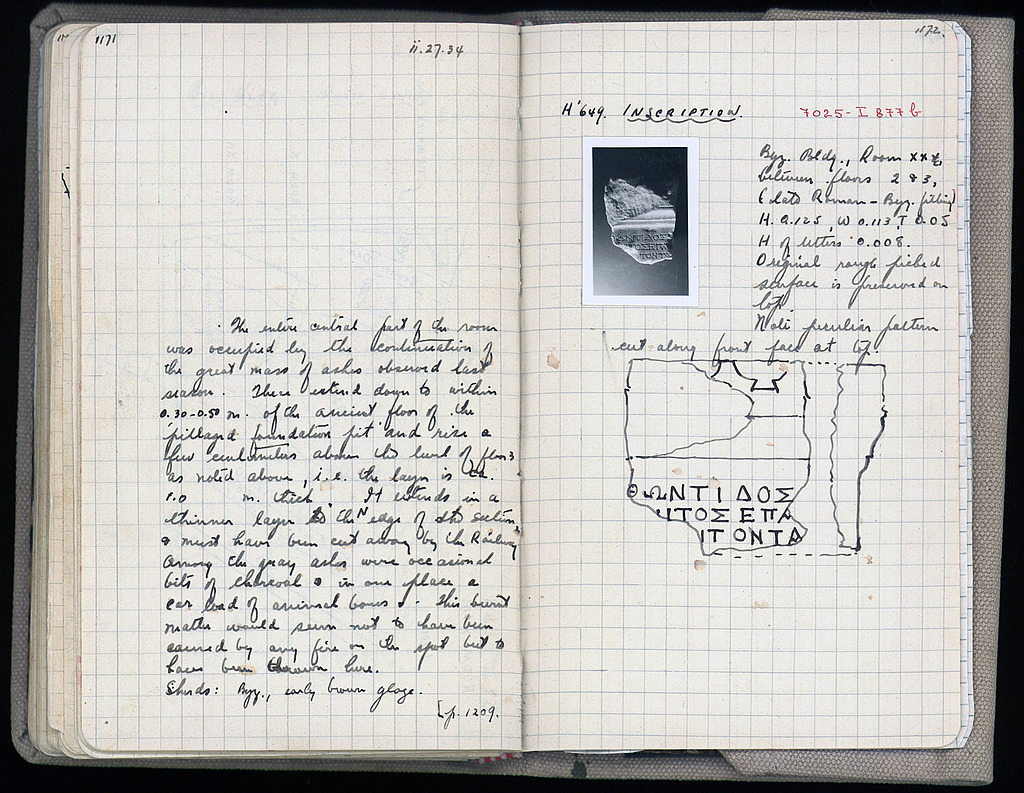 1171
ii.27.34
The entire central part of the room
was occupied by the continuation of
the great mass of ashes observed last
season. These extend down to within
0.30-0.50 m. of the ancient floor of the
pillaged foundation pit and rise a
few centimeters above the level of floor 3
as noted above, i.e. the layer is ca.
1.0 m. thick. It extends in a
thinner layer to the N edge of the section
& must have been cut away by the Railway
Among the gray ashes were occasional
bits of charcoal & in one place a
car load of animal bones. This burnt
matter would seem not to have been
caused by any fire on the spot but to
have been thrown here.
Sherds: Byz., early brown glaze.
[p. 1209.
1172.
H'649. INSCRIPTION.
7025-I 877 b
Byz. Bldg., Room
between floors 2 & 3,
(late Roman - Byz. filling)
H. 0.125, W 0.113, T 0.05
H of letters 0.008.
Original rough picked
surface is preserved on
top.
Note peculiar pattern
cut along front face at top.
ΝΤΙΔΟΣ
ΙΤΟΣΕΠΑ
ΙΤΟΝΤΑ